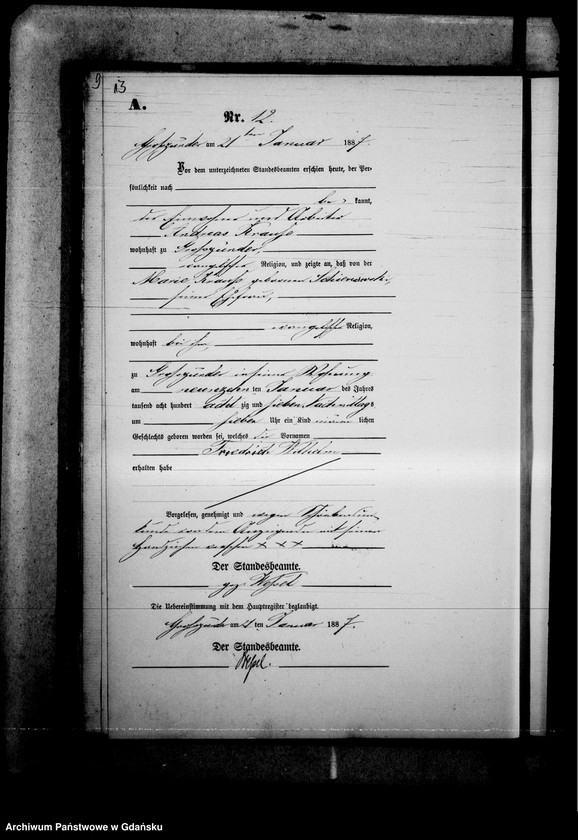 9 13
A.
Nr. 12.
Großzünder am 21 ten Januar 1887.
Vor dem unterzeichneten Standesbeamten erschien heute, der Per-
sönlichkeit nach
be kannt,
der Einwohner und Arbeiter
Andreas Krause
wohnhaft zu Großzünder,
evangelischer Religion, und zeigte an, daß von der
Marie Krause geborenen
seiner Ehefrau,
evangelischer Religion,
wohnhaft bei ihm,
zu Großzünder in seiner Wohnung
am neunzehn ten Januar des Jahres
tausend acht hundert acht zig und sieben Nachmittags
um sieben Uhr ein Kind männ lichen
Geschlechts geboren worden sei, welches die Vornamen
Friedrich Wilhelm
erhalten habe
Vorgelesen, genehmigt und wegen Schreibensun-
kunde von dem Anzeigenden mit seinem
Handzeichen versehen + + +
Der Standesbeamte.
gez. Wessel
Die Uebereinstimmung mit dem Hauptregister beglaubigt.
Großzünder am 21 ten Januar 1887.
Der Standesbeamte.
Wessel.
Archiwum Państwowe w Gdańsku